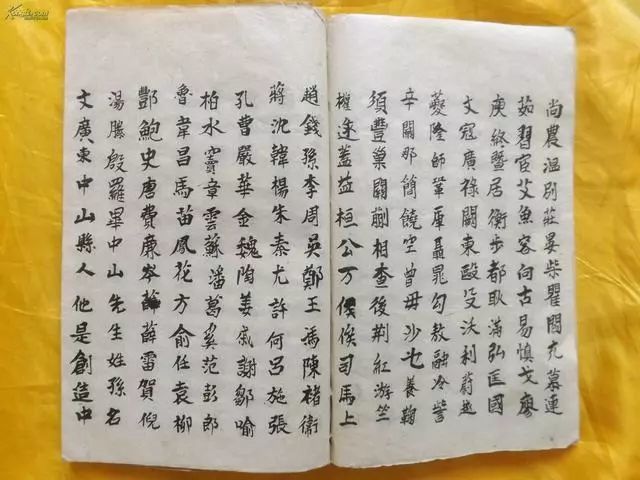 尚農温別莊晏柴瞿閻充慕連
茹習宦艾魚容向古易慎戈廖
庚終暨居衡步都耿滿弘匡國
文寇廣祿闕東毆殳沃利蔚越
夔隆師鞏厙聶晁勾敖融冷訾
辛闞那簡饒空曾毋沙乜養鞠
須豐巢關蒯相查後荆紅游竺
權逯蓋益桓公万俟俟司馬上
趙錢孫李周吳鄭王馮陳褚衛
蔣沈韓楊朱秦尤許何呂施張
孔曹嚴華金魏陶姜戚謝鄒喻
柏水竇章雲蘇潘葛奚范彭郎
魯韋昌馬苗鳳花方俞任袁柳
酆鮑史唐費廉岑薛雷賀倪
湯滕殷羅畢中山先生姓孫名
文廣東中山縣人他是創造中